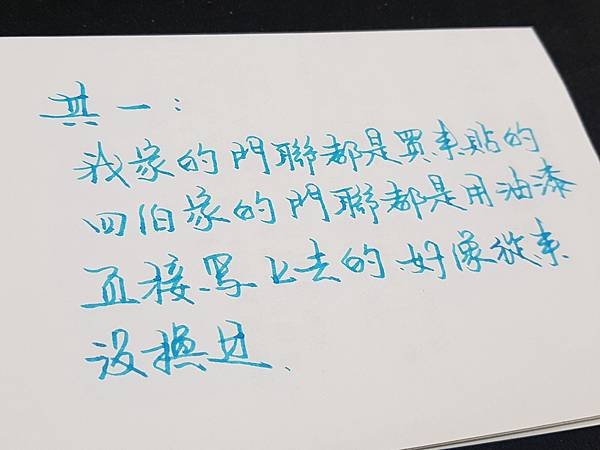 其一：
我家的門聯都是買來貼的
四伯家的門聯都是用油漆
直接寫上去的、好像從來
沒換過、